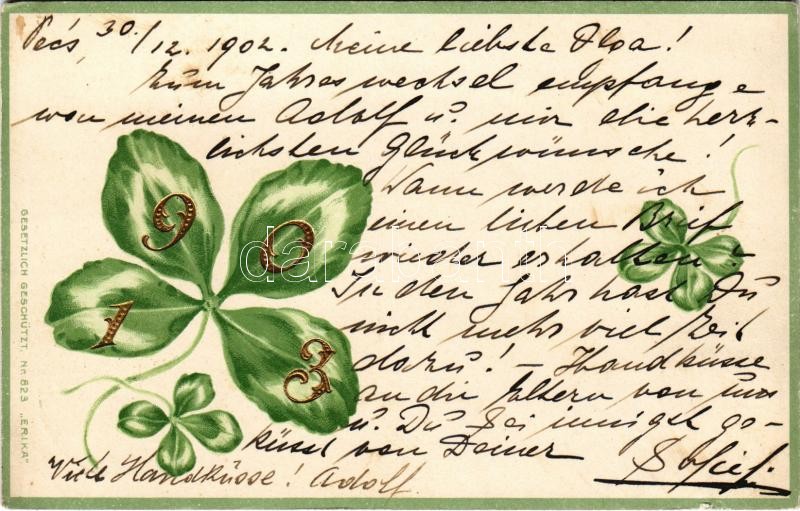 Pécs, 30./12. 1902. Meine liebste Ilga!
Zum Jahreswechsel empfange
von meinen Adolf u. mir die herz-
lichsten Glückwünsche!
Wann werde ich
einen lieben Brief
wieder erhalten?
In den Jahr hast Du
nicht mehr viel Zeit
dazu! – Handküsse
an die Eltern von uns
u. Du sei innigst ge-
küsst von Deiner
Sofie.
Viele Handküsse! Adolf.
1903
GESETZLICH GESCHÜTZT. Nr. 823 „ERIKA"
darabanth.com